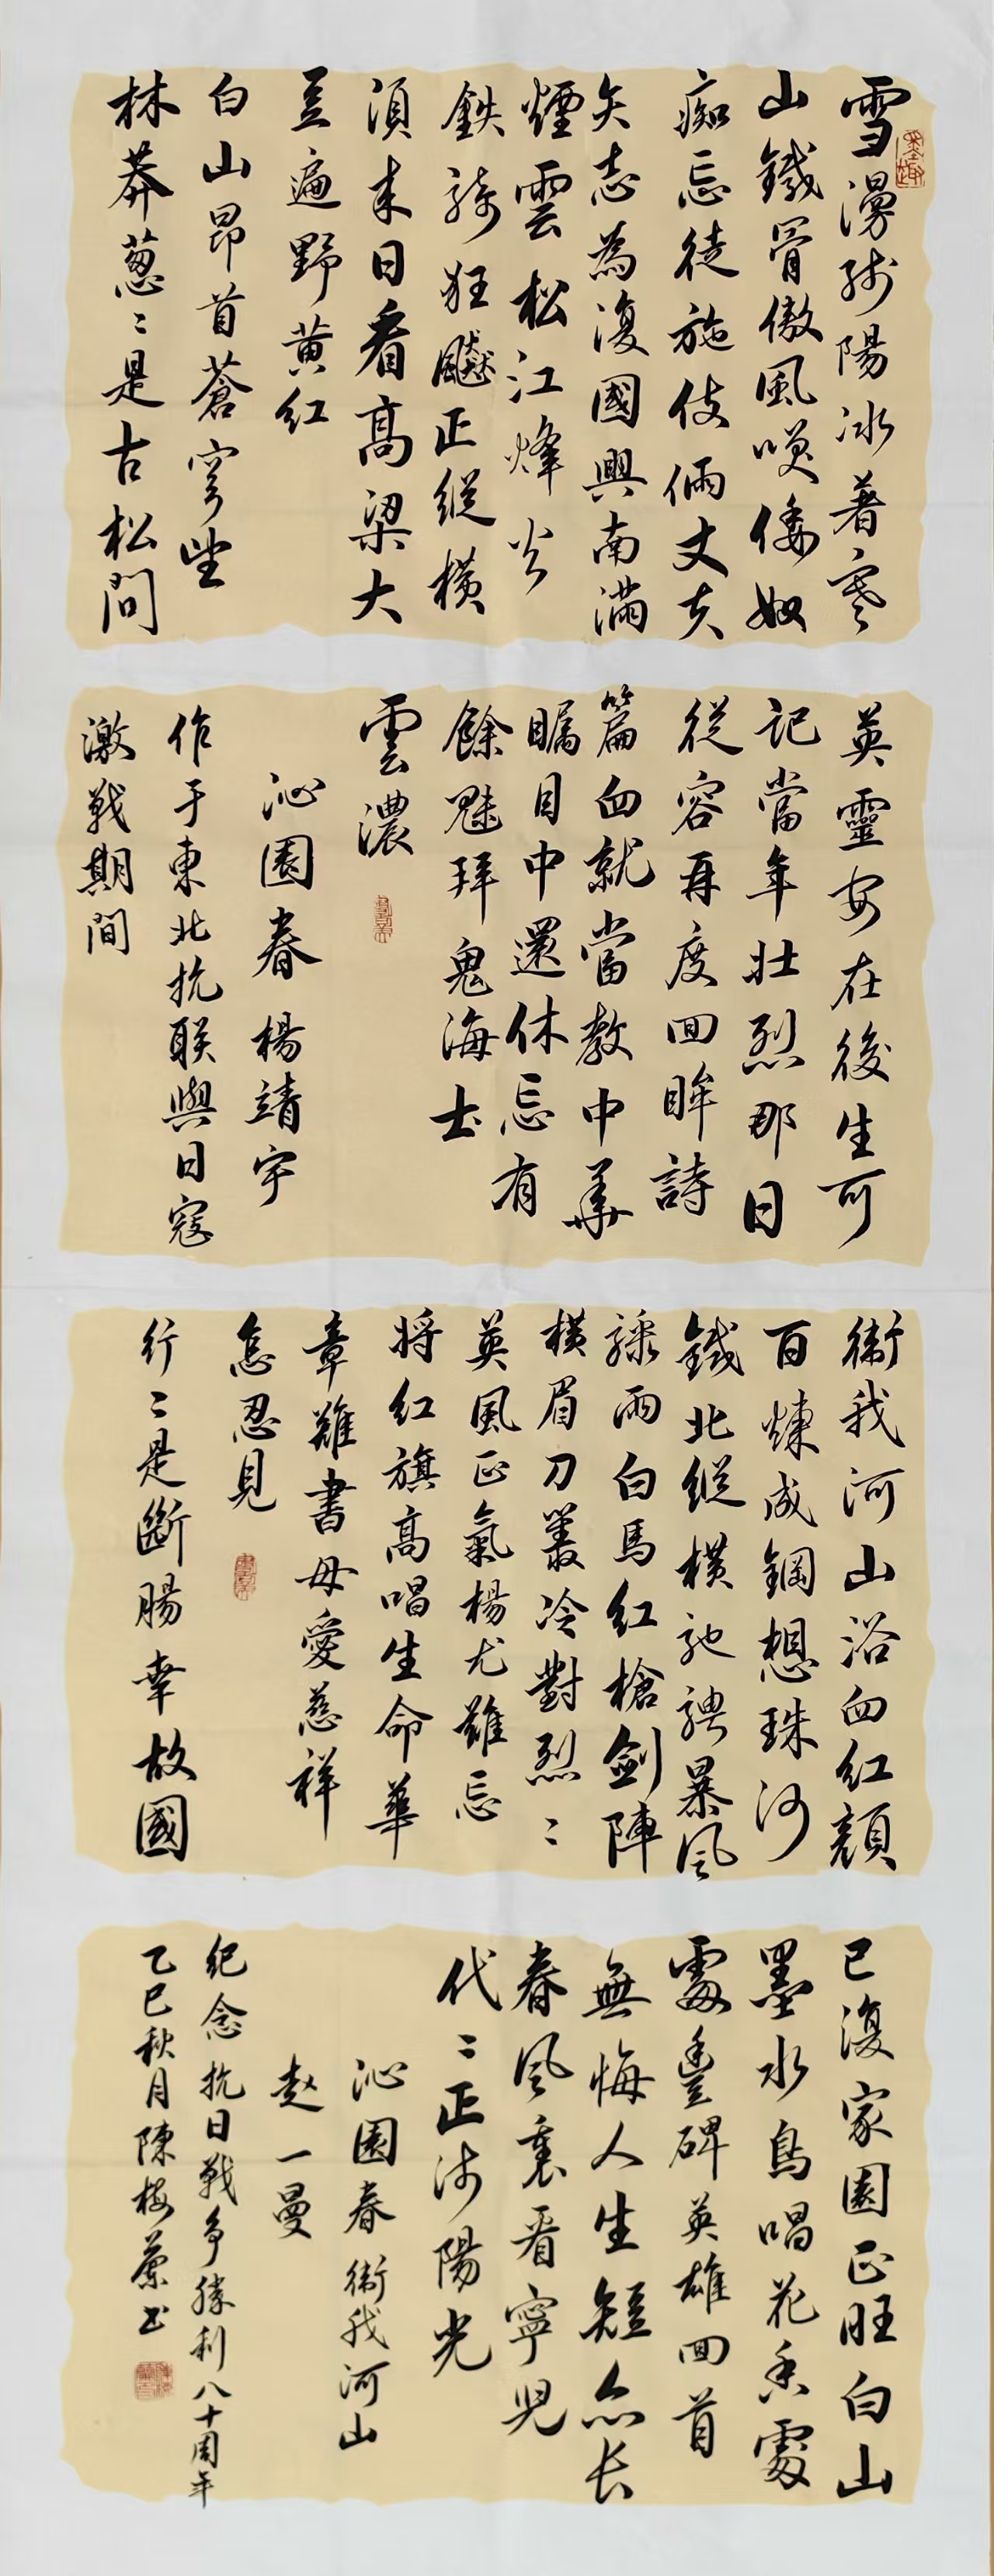 雪漫残陽冰著寒
山鐵骨傲風嘆倭奴
痴忘徒施伎倆丈夫
矢志為復國興南滿
煙雲松江烽火
鉄騎狂飚正縱橫
須來日看高梁大
豆遍野黄红
白山昂首蒼穹望
林莽葱〻是古松問
英靈安在後生可
記當年壯烈那日
從容再度回眸詩
篇血就當教中華
瞩目中還休忘有
餘魅拜鬼海士
雲濃
沁園春 楊靖宇
作于東北抗联與日寇
激戰期間
衛我河山浴血红顏
百煉成鋼想珠河
鐵北縱橫馳騁暴风
驟雨白馬红槍劍陣
横眉刀叢冷對烈〻
英風正氣楊尤難忘
将红旗高唱生命華
章難書母愛慈祥
怎忍見
行〻是斷腸幸故國
已復家園正旺白山
墨水鳥唱花香處
處豐碑英雄回首
無悔人生短亦长
春风裏看寧児
代〻正沐陽光
沁園春 衛我河山
赵一曼
纪念抗日戰争勝利八十周年
乙巳秋月陳梅蘭书